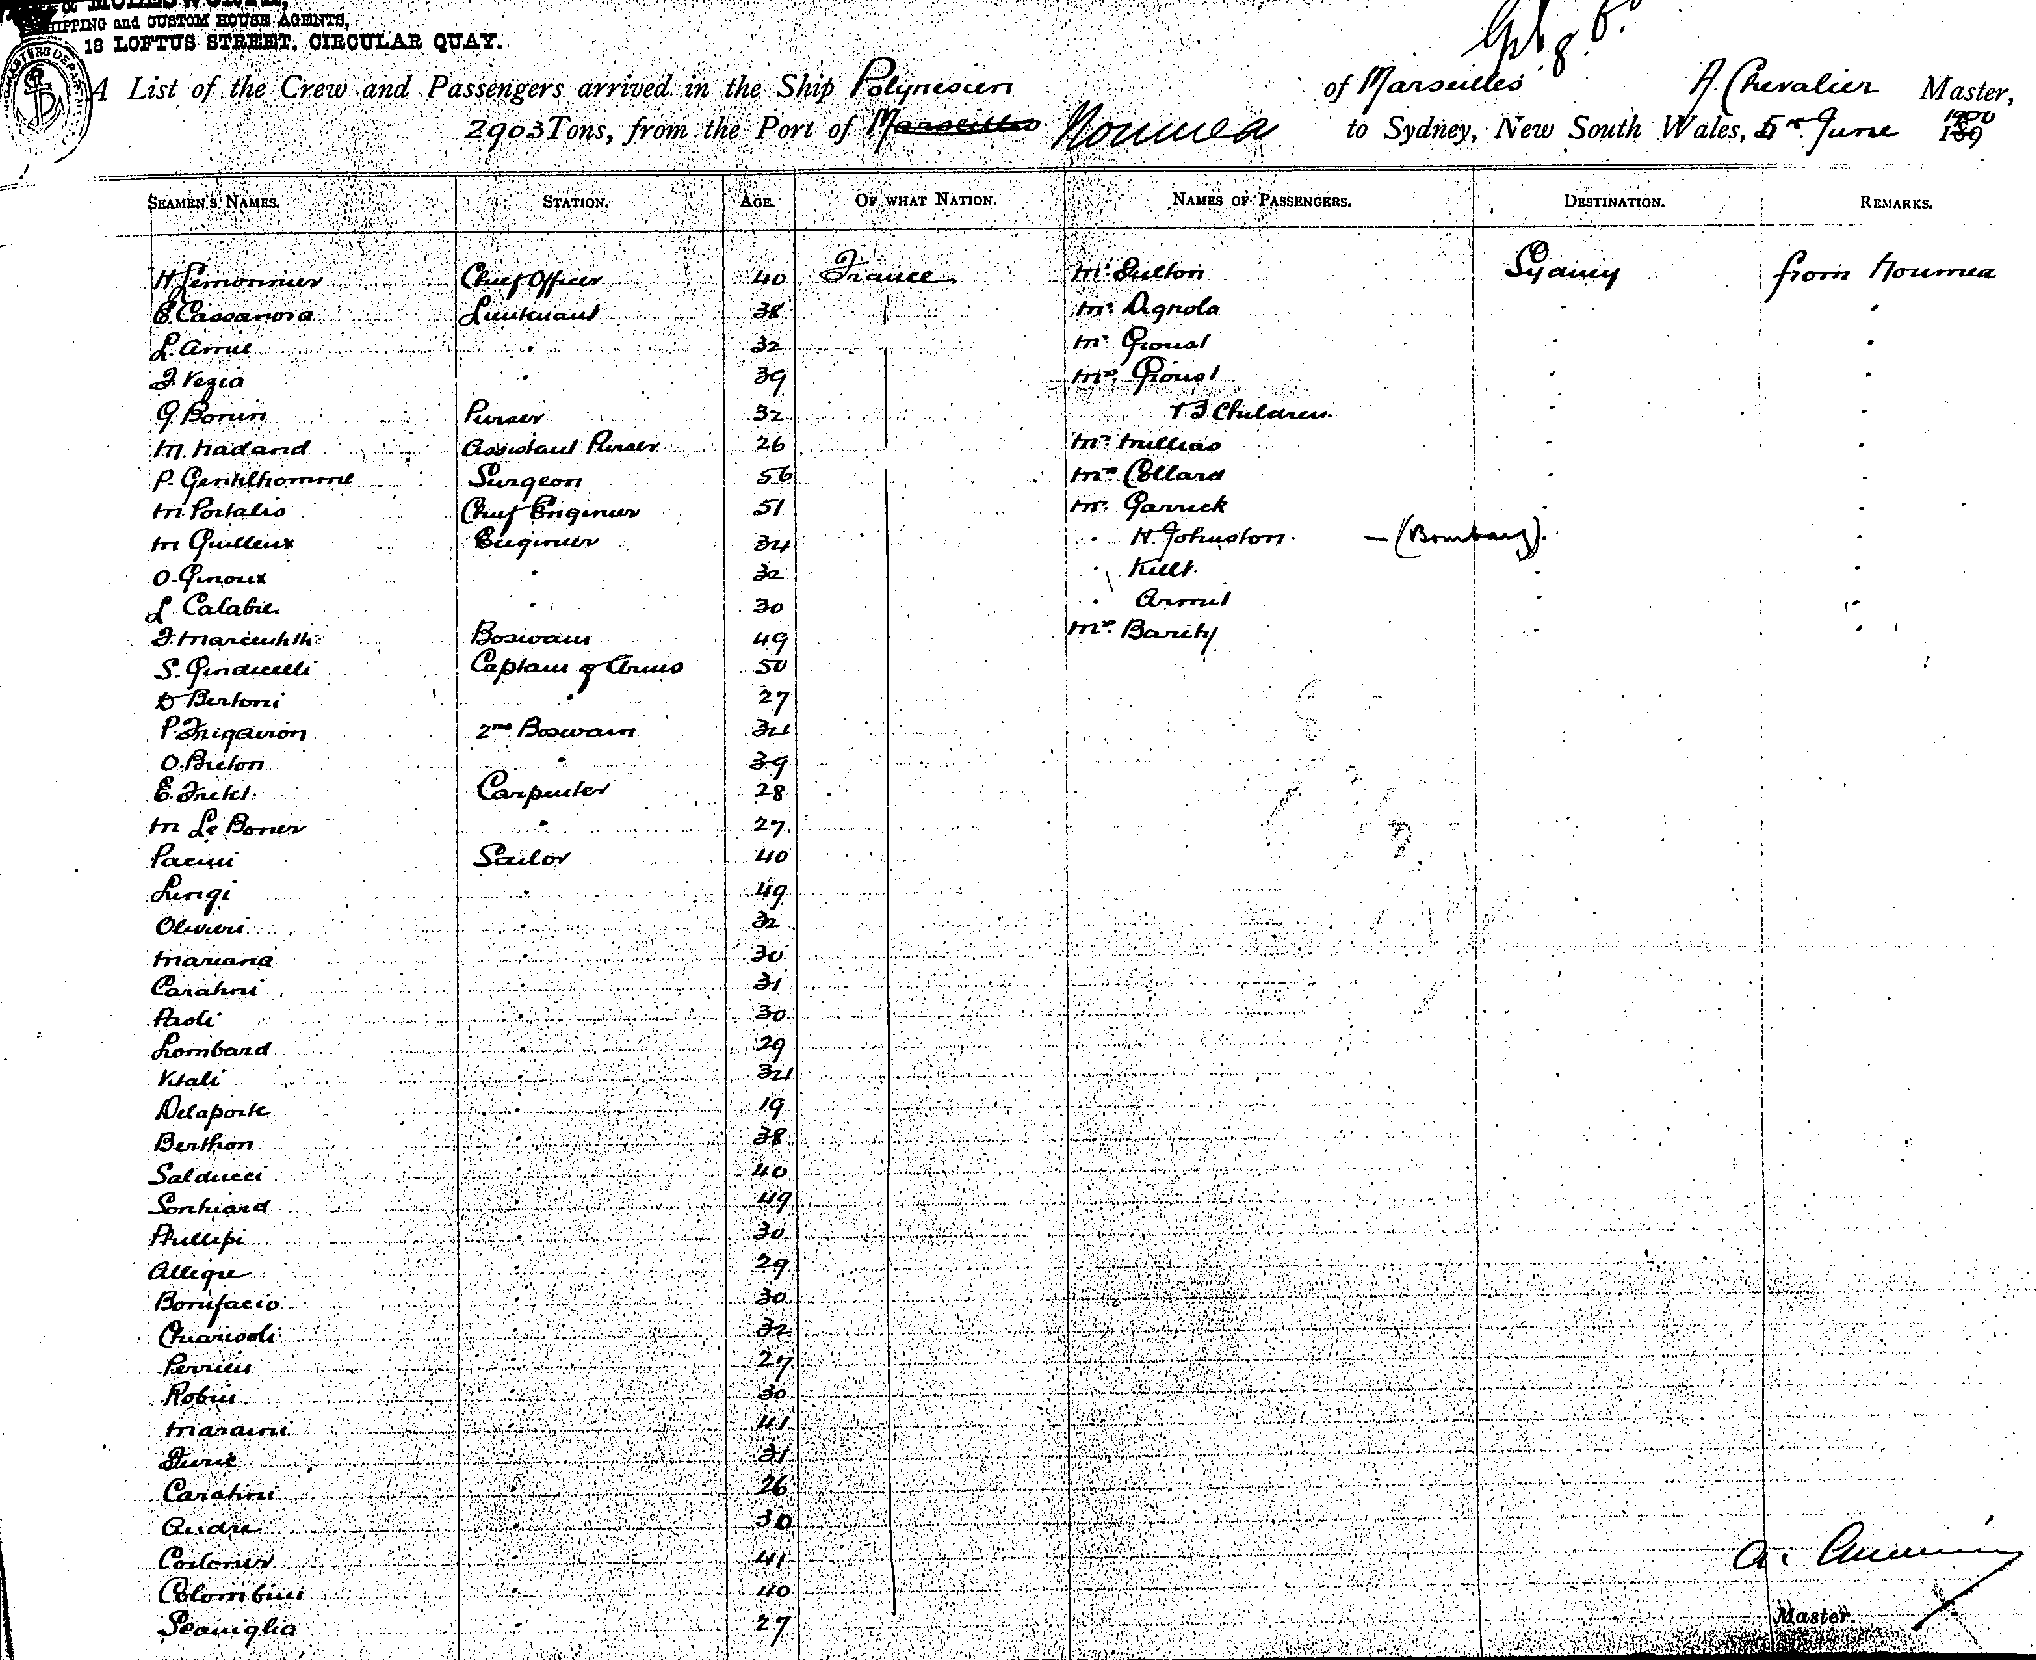 SHIPPING and CUSTOM HOUSE AGENTS,
18 LOFTUS STREET, CIRCULAR QUAY.
A List of the Crew and Passengers arrived in the Ship Polynesien of Marseilles A. Chevalier Master,
2903 Tons, from the Port of Marseilles Noumea to Sydney, New South Wales, 5th June 1900
SEAMEN'S NAMES. STATION. AGE. OF WHAT NATION. NAMES OF PASSENGERS. DESTINATION. REMARKS.
H Lemonnier Chief Officer 40 France Mr Sutton Sydney from Noumea
E Cassanova Lieutenant 38 Mr Agnola
L. Amie 32 Mr Gioust
J. Vezia 39 Mrs Gioust
G Bonin Purser 32 & 3 Children
M. Nadand Assistant Purser 26 Mr Millias
P. Gentilhomme Surgeon 56 Mrs Collard
M Portalis Chief Engineer 51 Mr Garrick
M Guilleux Engineer 34 " H. Johnston. — (Bombay).
O. Ginoux " 32 "
L Calabre " 30 "
Boswain 49 Mrs
S. Giudicelli Captain of Arms 50
D Bertoni " 27
P. 2nd Boswain 34
O. Breton " 39
E. Carpenter 28
M Le Boner " 27
Pacini Sailor 40
Luigi " 49
Olivieri " 32
Mariana " 30
Caratini " 31
Paoli " 30
Lombard " 29
Vitali " 34
Delaporte " 19
Berthon " 38
Salducci " 40
" 49
Phillipi " 30
Allegre " 29
Bonifacio " 30
" 32
Perrein " 27
Robin " 30
" 41
" 31
Caratini " 26
Andre " 30
" 41
Colombini " 40
" 27
Master